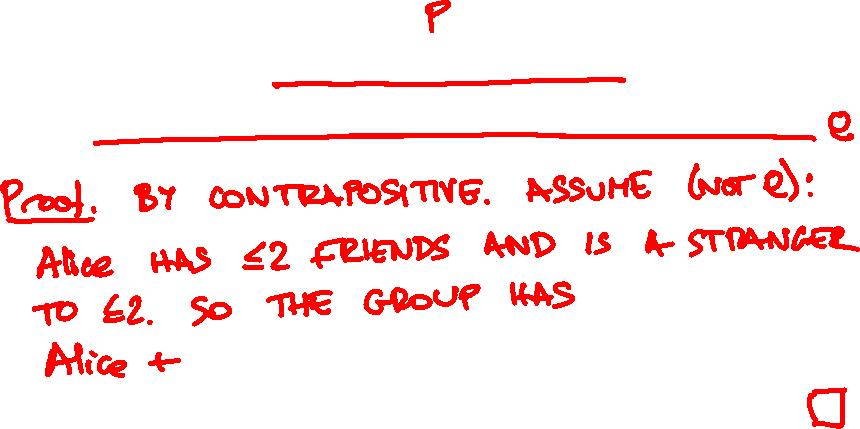 P
Q
Proof. BY CONTRAPOSITIVE. ASSUME (NOT Q):
Alice HAS ≤2 FRIENDS AND IS A STRANGER
TO ≤2. SO THE GROUP HAS
Alice +